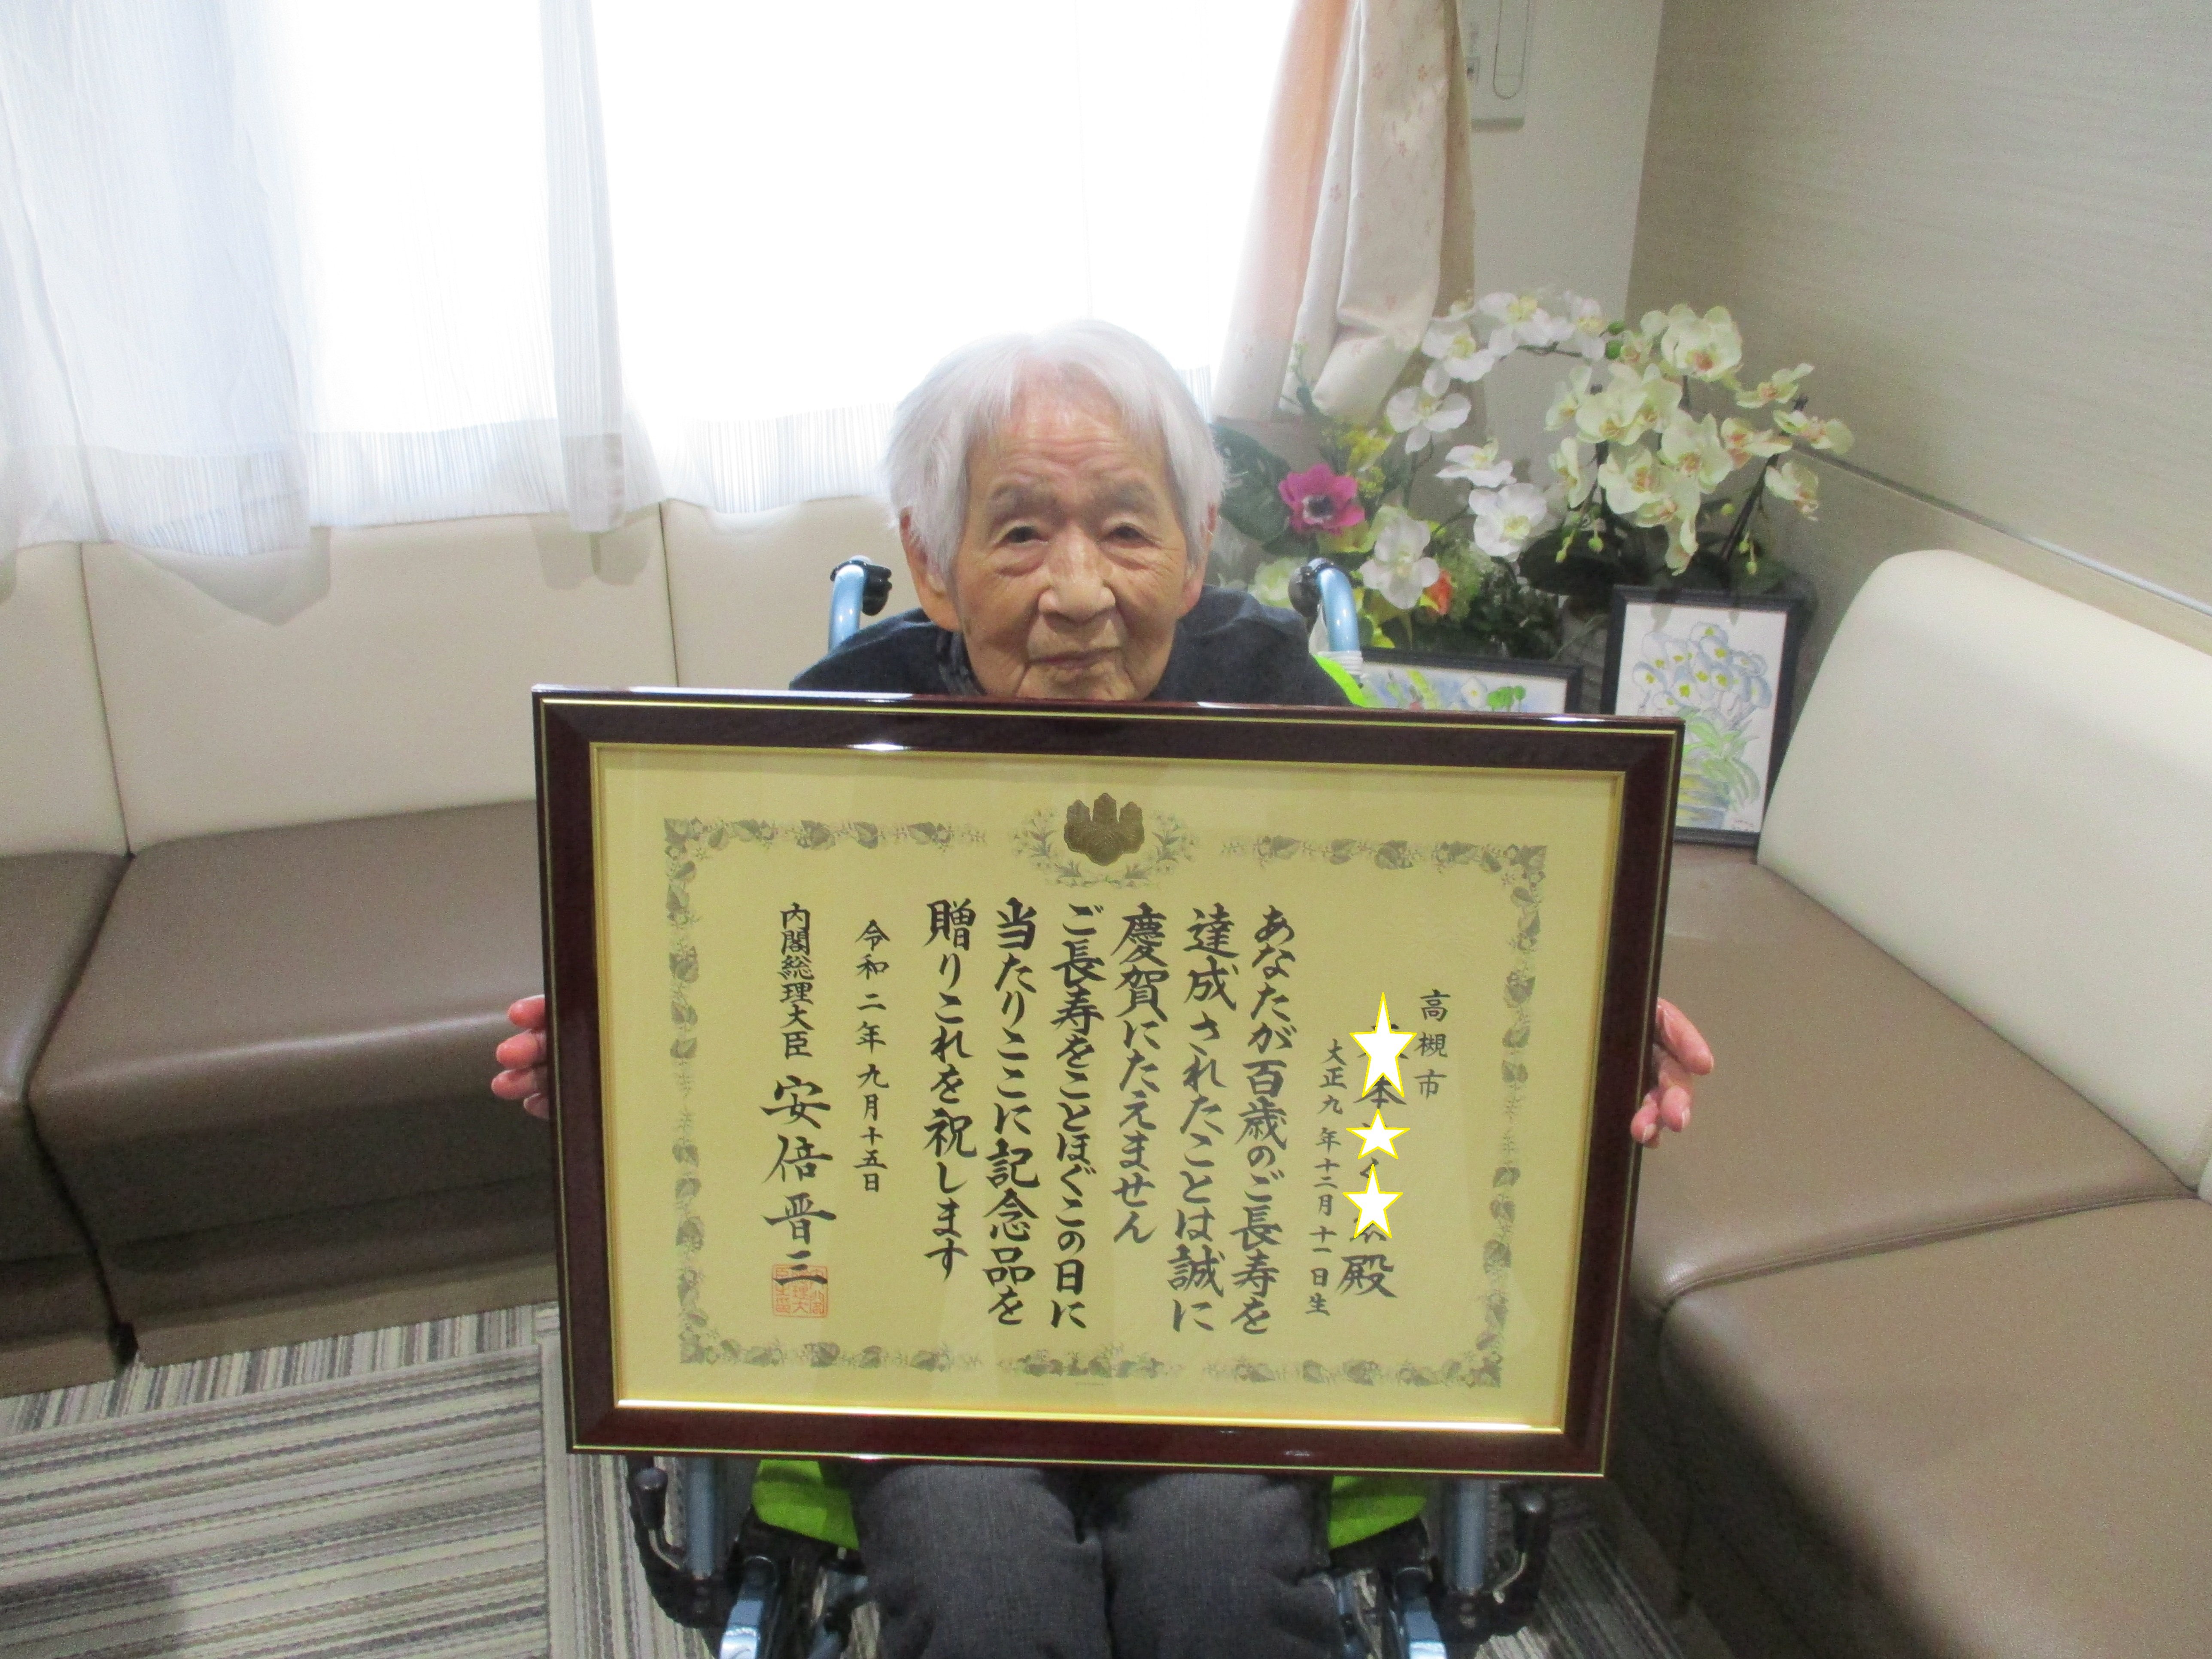 高槻市
本 殿
大正九年十二月十一日生
あなたが百歳のご長寿を
達成されたことは誠に
慶賀にたえません
ご長寿をことほぐこの日に
当たりここに記念品を
贈りこれを祝します
令和二年九月十五日
内閣総理大臣 安倍晋三